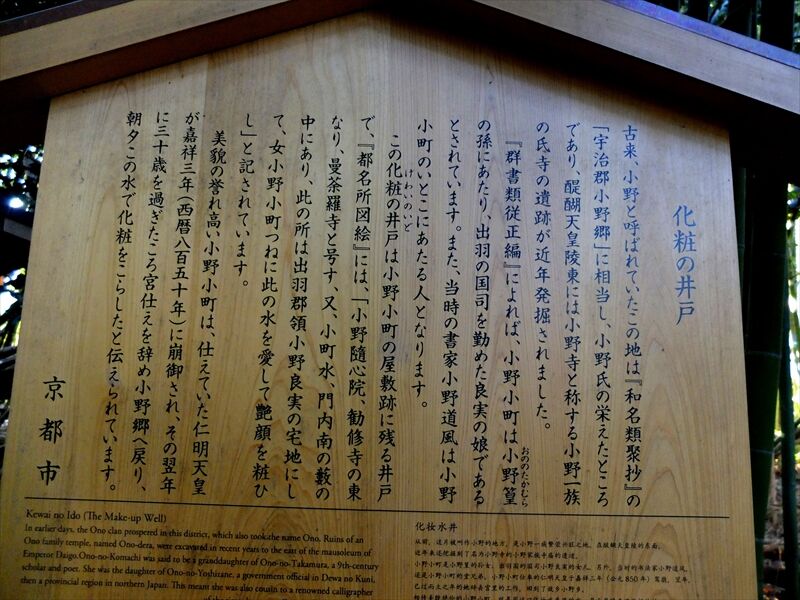 化粧の井戸
古来、小野と呼ばれていたこの地は『和名類聚抄』の
「宇治郡小野郷」に相当し、小野氏の栄えたところ
であり、醍醐天皇陵東には小野寺と称する小野一族
の氏寺の遺跡が近年発掘されました。
『群書類従正編』によれば、小野小町は小野篁
おののたかむら
の孫にあたり、出羽の国司を勤めた良実の娘である
とされています。また、当時の書家小野道風は小野
小町のいとこにあたる人となります。
この化粧の井戸は小野小町の屋敷跡に残る井戸
けわいのいど
で、『都名所図絵』には、「小野随心院、勧修寺の東
なり、曼荼羅寺と号す、又、小町水、門内南の藪の
中にあり、此の所は出羽郡領小野良実の宅地にし
て、女小野小町つねに此の水を愛して艶顔を粧ひ
し」と記されています。
美貌の誉れ高い小野小町は、仕えていた仁明天皇
が嘉祥三年(西暦八百五十年)に崩御され、その翌年
に三十歳を過ぎたころ宮仕えを辞め小野郷へ戻り、
朝夕この水で化粧をこらしたと伝えられています。
京都市
Kewai no Ido (The Make-up Well)
In earlier days, the Ono clan prospered in this district, which also took the name Ono. Ruins of an
Ono family temple, named Ono-dera, were excavated in recent years to the east of the mausoleum of
Emperor Daigo. Ono-no-Komachi was said to be a granddaughter of Ono-no-Takamura, a 9th-century
scholar and poet. She was the daughter of Ono-no-Yoshizane, a government official in Dewa no Kuni,
then a provincial region in northern Japan. This meant she was also cousin to a renowned calligrapher
化妆水井